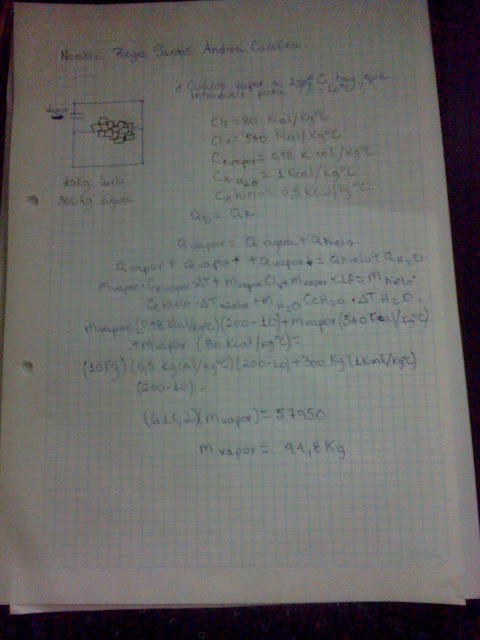 Nombre: Reyes Santos Andrea Carolina.
¿Cuánto vapor a 200°C hay que
introducir para 10°C?
Vapor
10Kg hielo
300Kg agua
Clf = 80 Kcal/Kg°C
Clv = 540 Kcal/Kg°C
Ce vapor = 0,48 Kcal/Kg°C
Ce H2O = 1 Kcal/Kg°C
Ce hielo = 0,5 Kcal/Kg°C.
Q vapor = Q agua + Q hielo
Q vapor + Q vapor + Q vapor = Q hielo + Q H2O.
m vapor · Ce vapor · ΔT + m vapor Clv + m vapor · CLF = m hielo ·
Ce hielo · ΔT hielo + m H2O Ce H2O · ΔT H2O.
m vapor (0,48 Kcal/Kg°C)(200-10) + m vapor (540 Kcal/Kg°C)
+ m vapor (80 Kcal/Kg°C) =
(10Kg)(0,5 Kgcal/Kg°C)(200-10) + 300 Kg (1 Kcal/Kg°C)
(200-10).
(611,2)(m vapor) = 57950
m vapor = 94,8 Kg